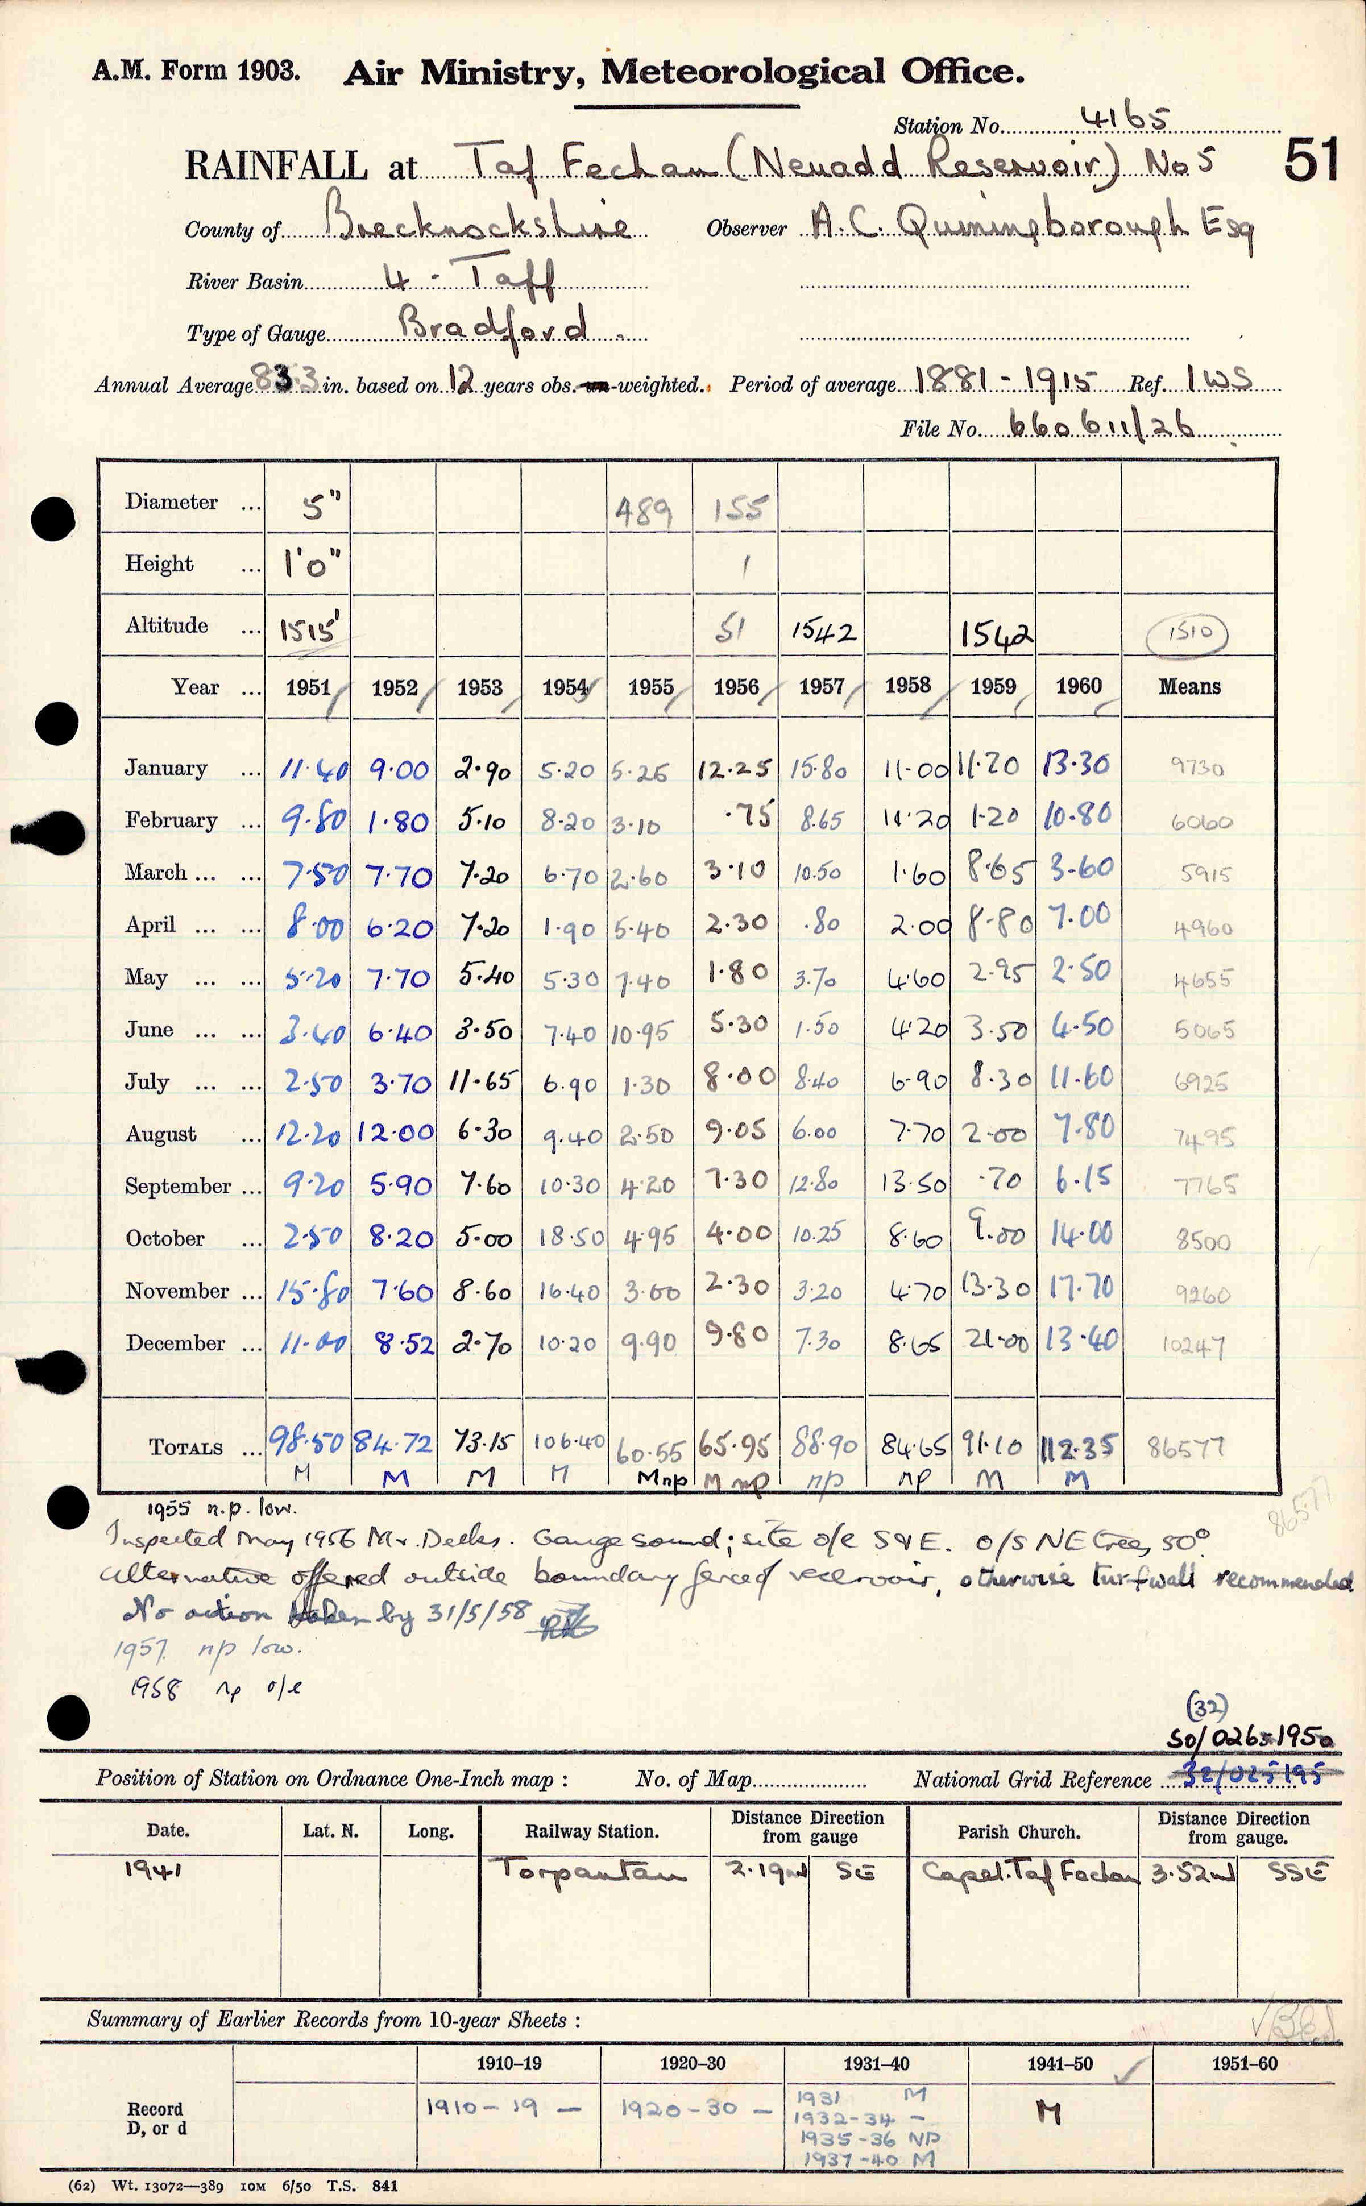 A.M. Form 1903. Air Ministry, Meteorological Office.
Station No. 4165
RAINFALL at Taf Fechan (Neuadd Reservoir) No 5 51
County of Brecknockshire Observer A.C. Quiningborough Esq
River Basin 4 - Taff
Type of Gauge Bradford.
Annual Average 83.3 in. based on 12 years obs. un-weighted. Period of average 1881-1915 Ref. IWS
File No. 660611/26
Diameter ... 5" 489 155
Height ... 1'0" 1
Altitude ... 1515' 51 1542 1542 1510
Year ... 1951 1952 1953 1954 1955 1956 1957 1958 1959 1960 Means
January ... 11.40 9.00 2.90 5.20 5.25 12.25 15.80 11.00 11.20 13.30 9730
February ... 9.80 1.80 5.10 8.20 3.10 .75 8.65 11.20 1.20 10.80 6060
March ... ... 7.50 7.70 7.20 6.70 2.60 3.10 10.50 1.60 8.65 3.60 5915
April ... ... 8.00 6.20 7.20 1.90 5.40 2.30 .80 2.00 8.80 7.00 4960
May ... ... 5.20 7.70 5.40 5.30 7.40 1.80 3.70 4.60 2.95 2.50 4655
June ... ... 3.40 6.40 3.50 7.40 10.95 5.30 1.50 4.20 3.50 4.50 5065
July ... ... 2.50 3.70 11.65 6.90 1.30 8.00 8.40 6.90 8.30 11.60 6925
August ... 12.20 12.00 6.30 9.40 2.50 9.05 6.00 7.70 2.00 7.80 7495
September ... 9.20 5.90 7.60 10.30 4.20 7.30 12.80 13.50 .70 6.15 7765
October ... 2.50 8.20 5.00 18.50 4.95 4.00 10.25 8.60 9.00 14.00 8500
November ... 15.80 7.60 8.60 16.40 3.00 2.30 3.20 4.70 13.30 17.70 9260
December ... 11.00 8.52 2.70 10.20 9.90 9.80 7.30 8.65 21.00 13.40 10247
TOTALS ... 98.50 84.72 73.15 106.40 60.55 65.95 88.90 84.65 91.10 112.35 86577
M M M M Mnp M np np np M M
1955 n.p. low. 86577
Inspected May 1956 Mr. Deeks. Gauge sound; site o/e S & E. o/s NE tree, 50°.
Alternative offered outside boundary fence of reservoir, otherwise turf wall recommended
No action taken by 31/5/58
1957. np low.
1958 np o/e
(32)
SO/026 1950
Position of Station on Ordnance One-Inch map : No. of Map National Grid Reference 32/025195
Date. Lat. N. Long. Railway Station. Distance Direction from gauge Parish Church. Distance Direction from gauge.
1941 Torpantau 2.19 SE Capel. Taf Fechan 3.52 SSE
Summary of Earlier Records from 10-year Sheets :
1910-19 1920-30 1931-40 1941-50 1951-60
Record D, or d 1910-19 - 1920-30 - 1931 M M
1932-34 -
1935-36 NP
1937-40 M
(62) Wt. 13072—389 10M 6/50 T.S. 841